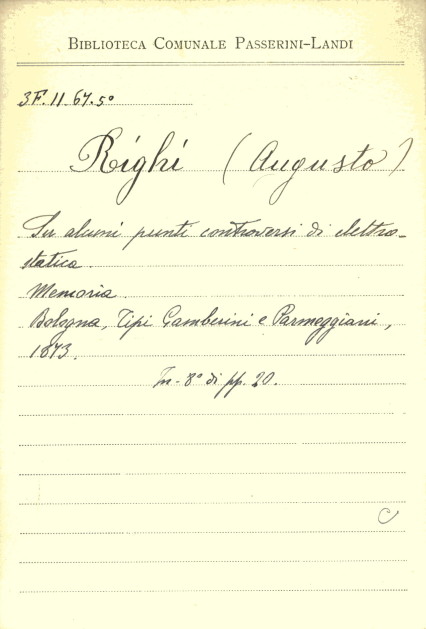 BIBLIOTECA COMUNALE PASSERINI-LANDI
3F. II. 67. 5°
Righi (Augusto)
Su alcuni punti controversi di elettro-
statica.
Memoria.
Bologna, Tipi Gamberini e Parmeggiani,
1873.
In-8° di pp. 20.
C